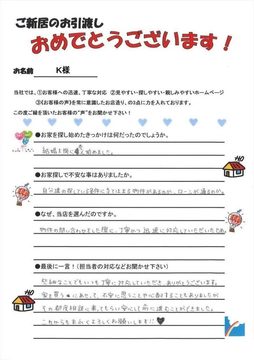 ご新居のお引渡し
おめでとうございます！
お名前 K様
当社では、①お客様への迅速、丁寧な対応 ②見やすい・探しやすい・親しみやすいホームページ
③《お客様の声》を常に意識したお店造り、の3点に力を入れております。
この度ご縁を頂いたお客様の"声"をお聞かせ下さい！
●お家を探し始めたきっかけは何だったのでしょうか。
結婚を機に 始めました。
●お家探しで不安な事はありましたか。
自分達の探している条件にあてはまる物件があるのか、ローンが通るのか。
●なぜ、当店を選んだのですか。
物件の問い合わせをした際に、丁寧かつ迅速に対応していただいたため
●最後に一言！（担当者の対応などお聞かせ下さい）
些細なことでもいつも親切に対応していただき、ありがとうございます。
家を買うにあたって、不安に思うことや心配することもありましたが
その都度相談に乗ってもらい安心して前に進むことができました。
これからもよろしくお願いします!!